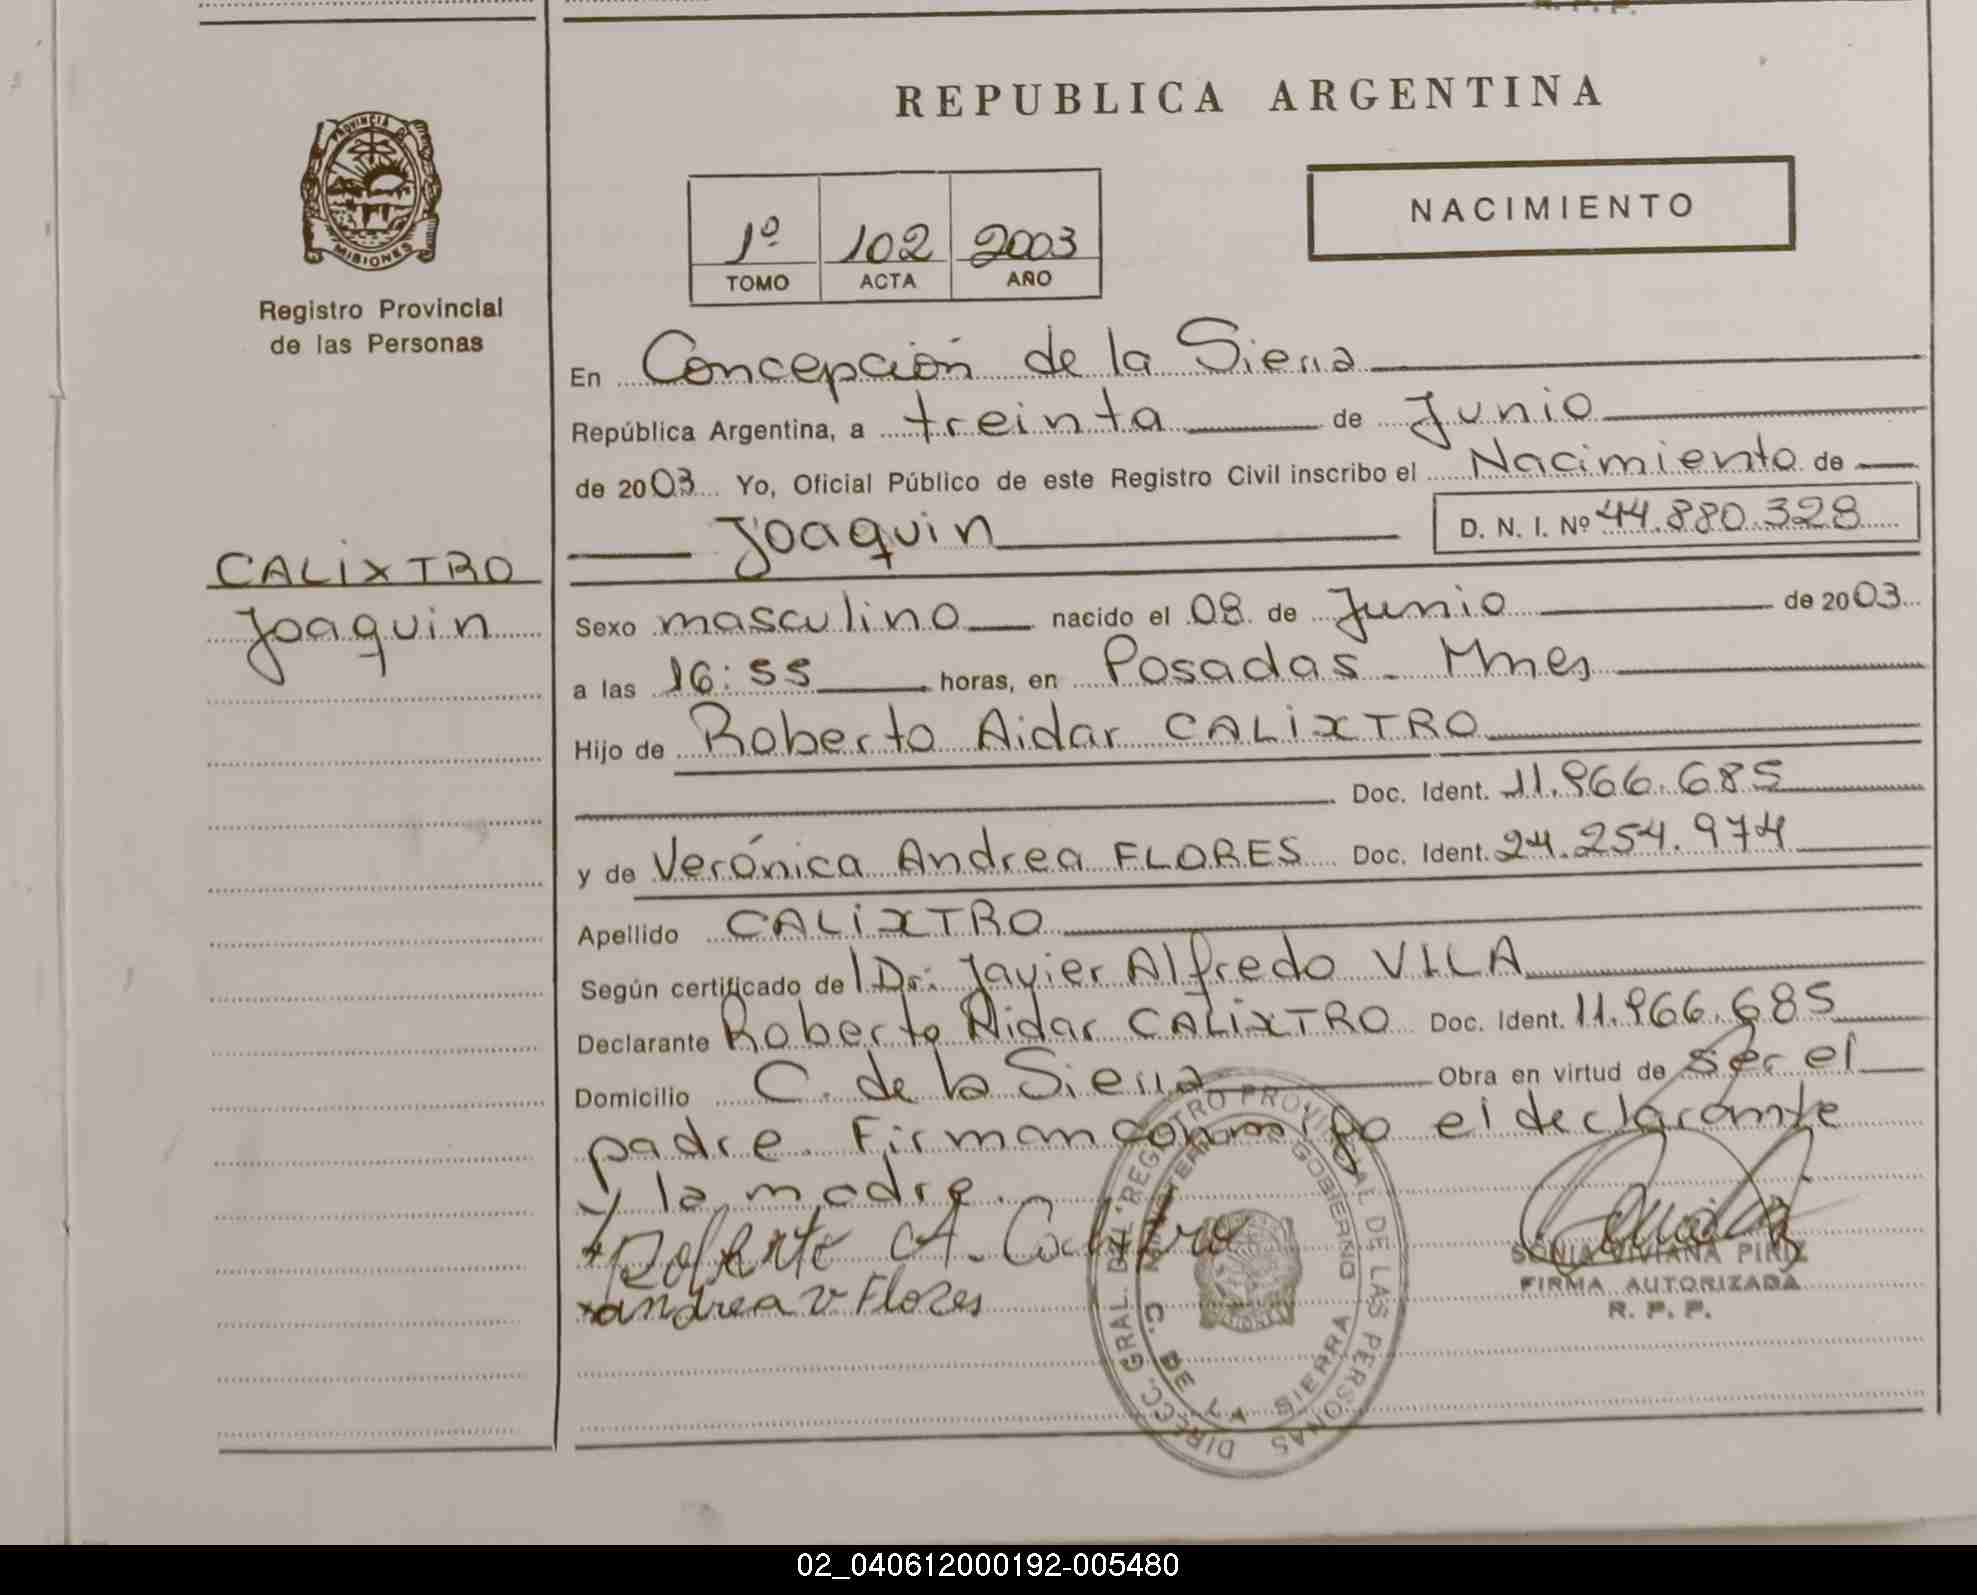 REPUBLICA ARGENTINA
PROVINCIA DE MISIONES
Registro Provincial
de las Personas
1º 102 2003
TOMO ACTA AÑO
NACIMIENTO
En Concepción de la Sierra
República Argentina, a treinta de Junio
de 2003 Yo, Oficial Público de este Registro Civil inscribo el Nacimiento de
Joaquin D. N. I. Nº 44.880.328
CALIXTRO
Joaquin
Sexo masculino nacido el 08 de Junio de 2003
a las 16:55 horas, en Posadas - Mnes
Hijo de Roberto Aidar CALIXTRO
Doc. Ident. 11.966.685
y de Verónica Andrea FLORES Doc. Ident. 24.254.974
Apellido CALIXTRO
Según certificado del Dr: Javier Alfredo VILA
Declarante Roberto Aidar CALIXTRO Doc. Ident. 11.966.685
Domicilio C. de la Sierra Obra en virtud de ser el
padre. Firman conmigo el declarante
y la madre.
Roberto A. Calixtro
andrea v Flores
DIRECC. GRAL. DEL REGISTRO PROVINCIAL DE LAS PERSONAS
GOBIERNO
C. DE LA SIERRA
SONIA VIVIANA PIRIZ
FIRMA AUTORIZADA
R. P. P.
02_040612000192-005480